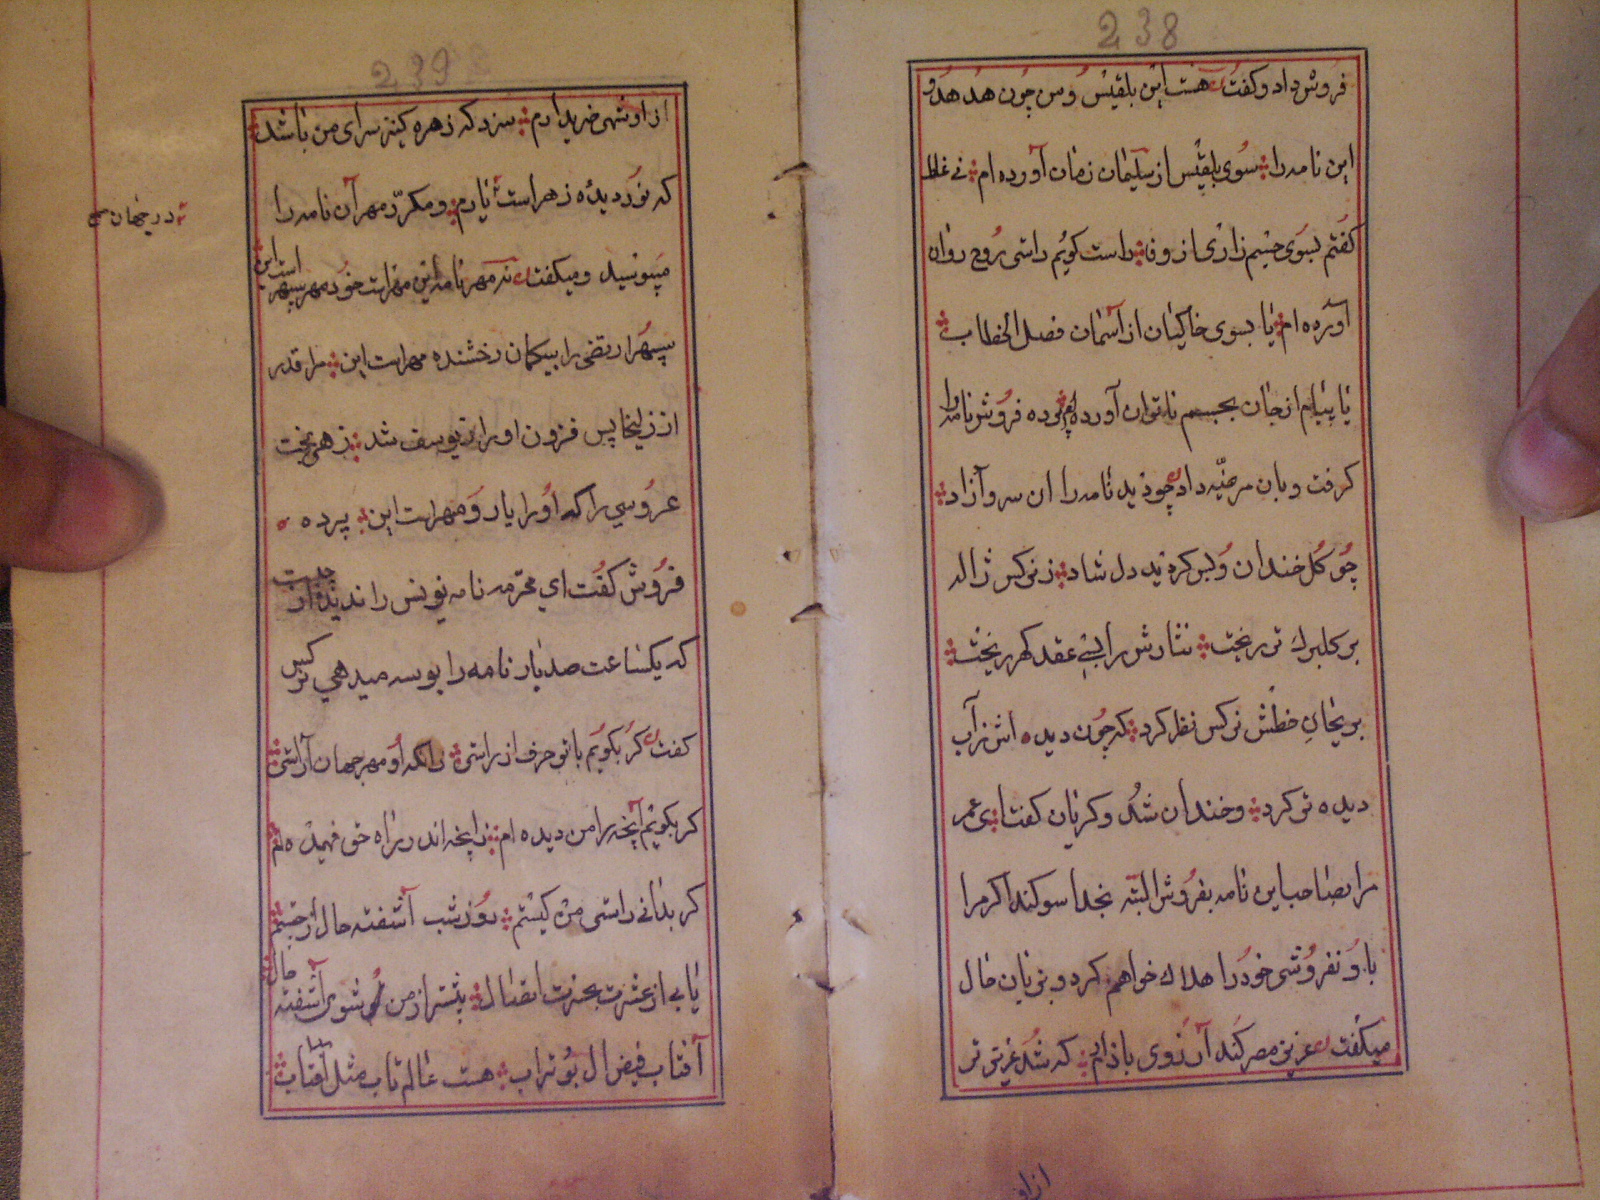 238
فروش داد و کفت هست این بلقیس ومن چون هدهد و
این نامه را سوی بلقیس از سلیمان زمان آورده ام نی غلط
کفتم بسوی جسم زاری از وفا راست کویم راستی روح روان
آورده ام یا بسوی خاکیان از آسمان فصل الخطاب
یا پیام از جان بجسم ناتوان آورده ام پرده فروش نامه را
کرفت و بان مرضیه داد چو دید نامه را ان سرو آزاد
چو کل خندان و لیس کردید دل شاد ز نرکس ژاله
بر کلبرک تر ریخت نثارش را بسی عقد کهر ریخت
بریحان خطش نرکس نظر کرد که چون دیده اش ز آب
دیده تر کرد و خندان شد و کریان کفت ای عمر
مرا بصاحب این نامه بفروش البته بخدا سوکند اکر مرا
باو نفروشی خود را هلاک خواهم کرد و بزبان حال
میکفت عزیز مصر کند آرزوی بازارم که شد عزیزی تر
از او
239
از او شهی خریدارم سزد که زهره کنیز سرای من باشد
که نور دیده زهراست یارم و مکرر مهر آن نامه را
میبوسید و میکفت نه مهر نامه این مهراست خود مهر سپهر است این
سپهر ارتضی را بیکمان رخشنده مهراست این مرا قدر
از زلیخا پس فزون او را ز یوسف شد زهی بخت
عروسی را که او را یار و مهراست این پرده
فروش کفت ای محترمه نامه نویس را ندیده از چیست
که یکساعت صد بار نامه را بوسه میدهی نرکس
کفت کر بکویم با تو حرف از راستی زانکه او مهر جهان آراستی
کر بکویم آنچه را من دیده ام زانچه اندر راه حق فهمیده ام
کر بدانی راستی من کیستم روز شب آشفته حال از چیستم
یابی از عشرت بحیرت انتقال بیشتر از من شوی آشفته حال
آفتاب فیض ال بو تراب هست عالم تاب مثل آفتاب